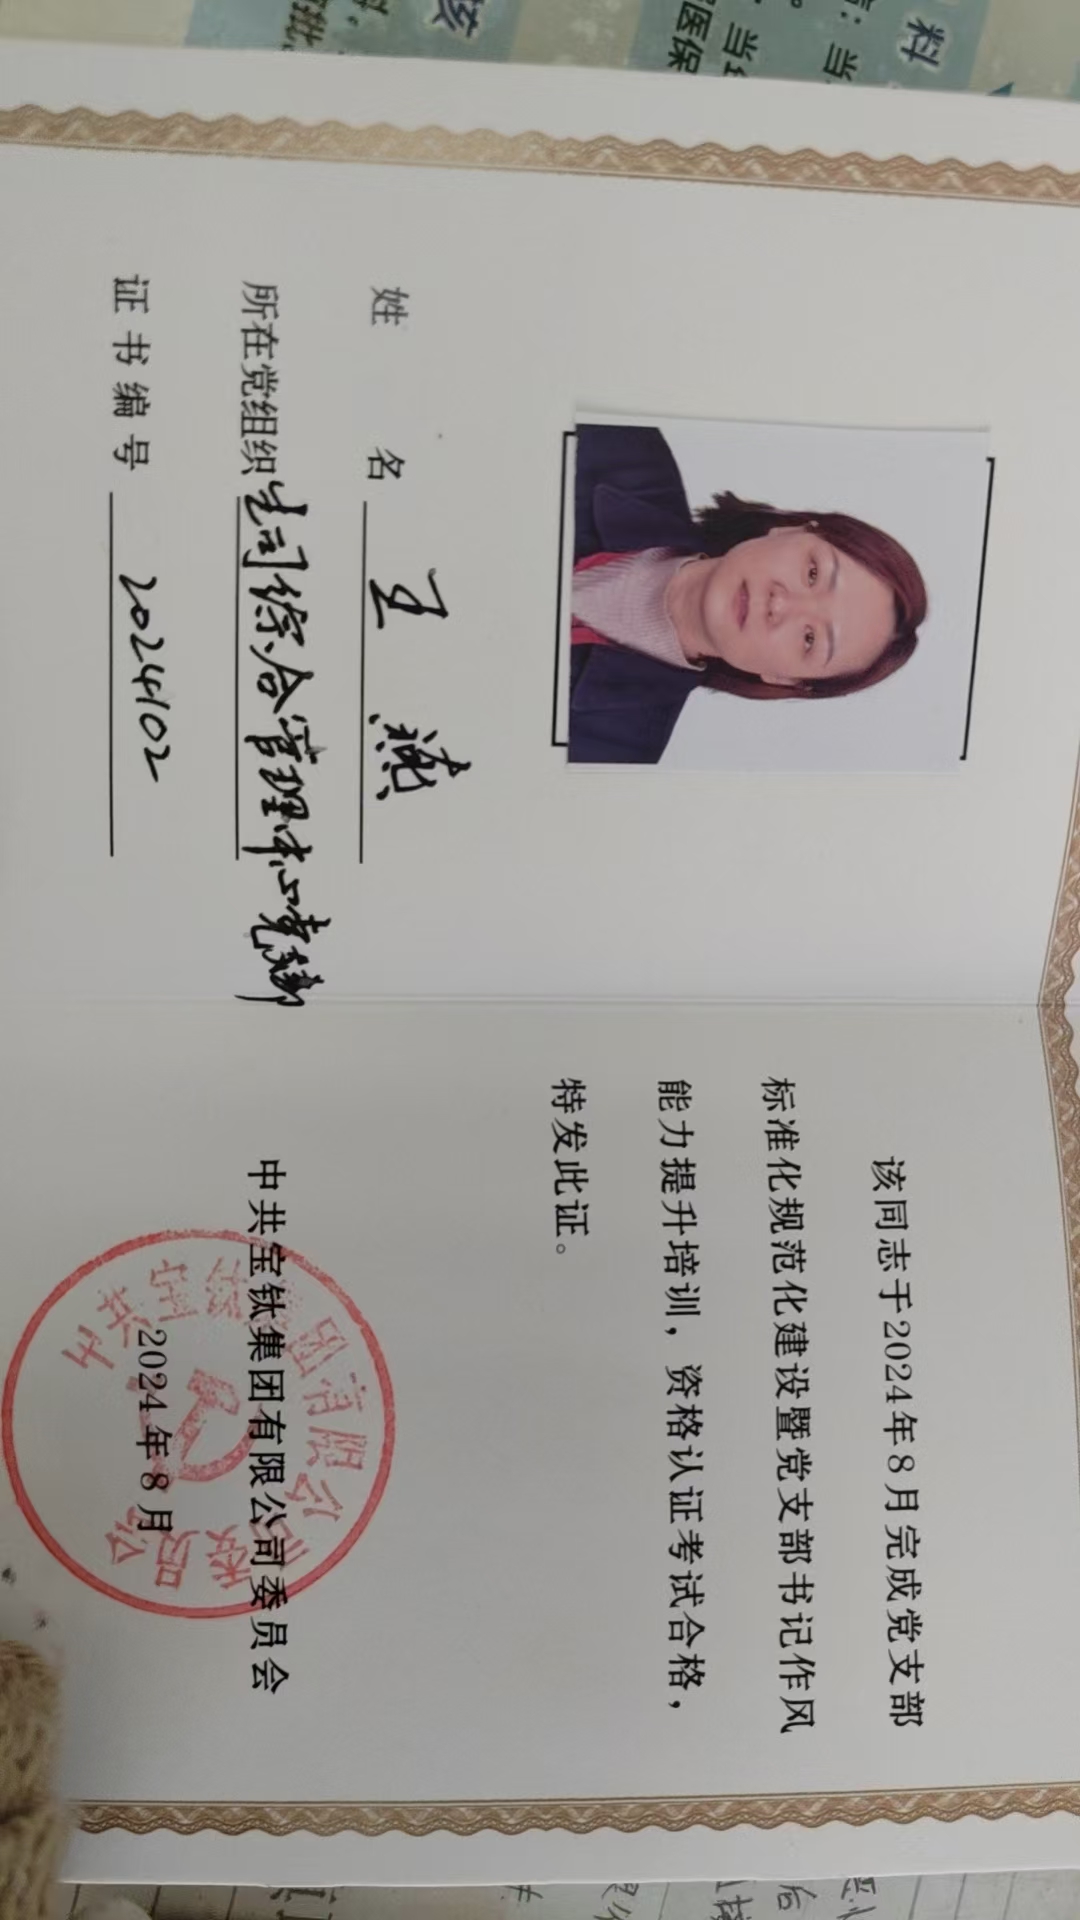 姓 名 王燕
所在党组织 生司综合管理中心党支部
证书编号 2024102
该同志于2024年8月完成党支部
标准化规范化建设暨党支部书记作风
能力提升培训，资格认证考试合格，
特发此证。
中共宝钛集团有限公司委员会
2024年8月
中共宝钛集团有限公司委员会